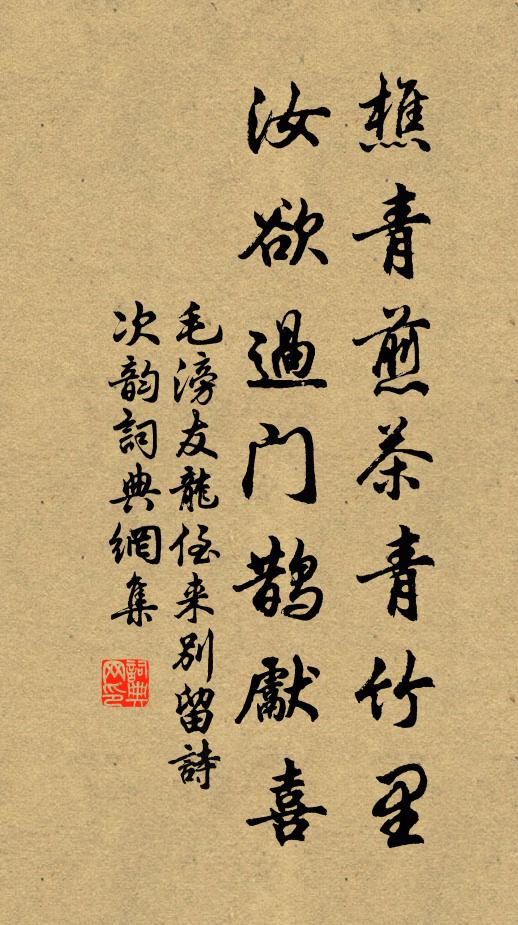 樵青煎茶青竹里
汝欲過门鹊獻喜
毛滂友龍侄来别留詩
次韵詞典網集
詞典网印